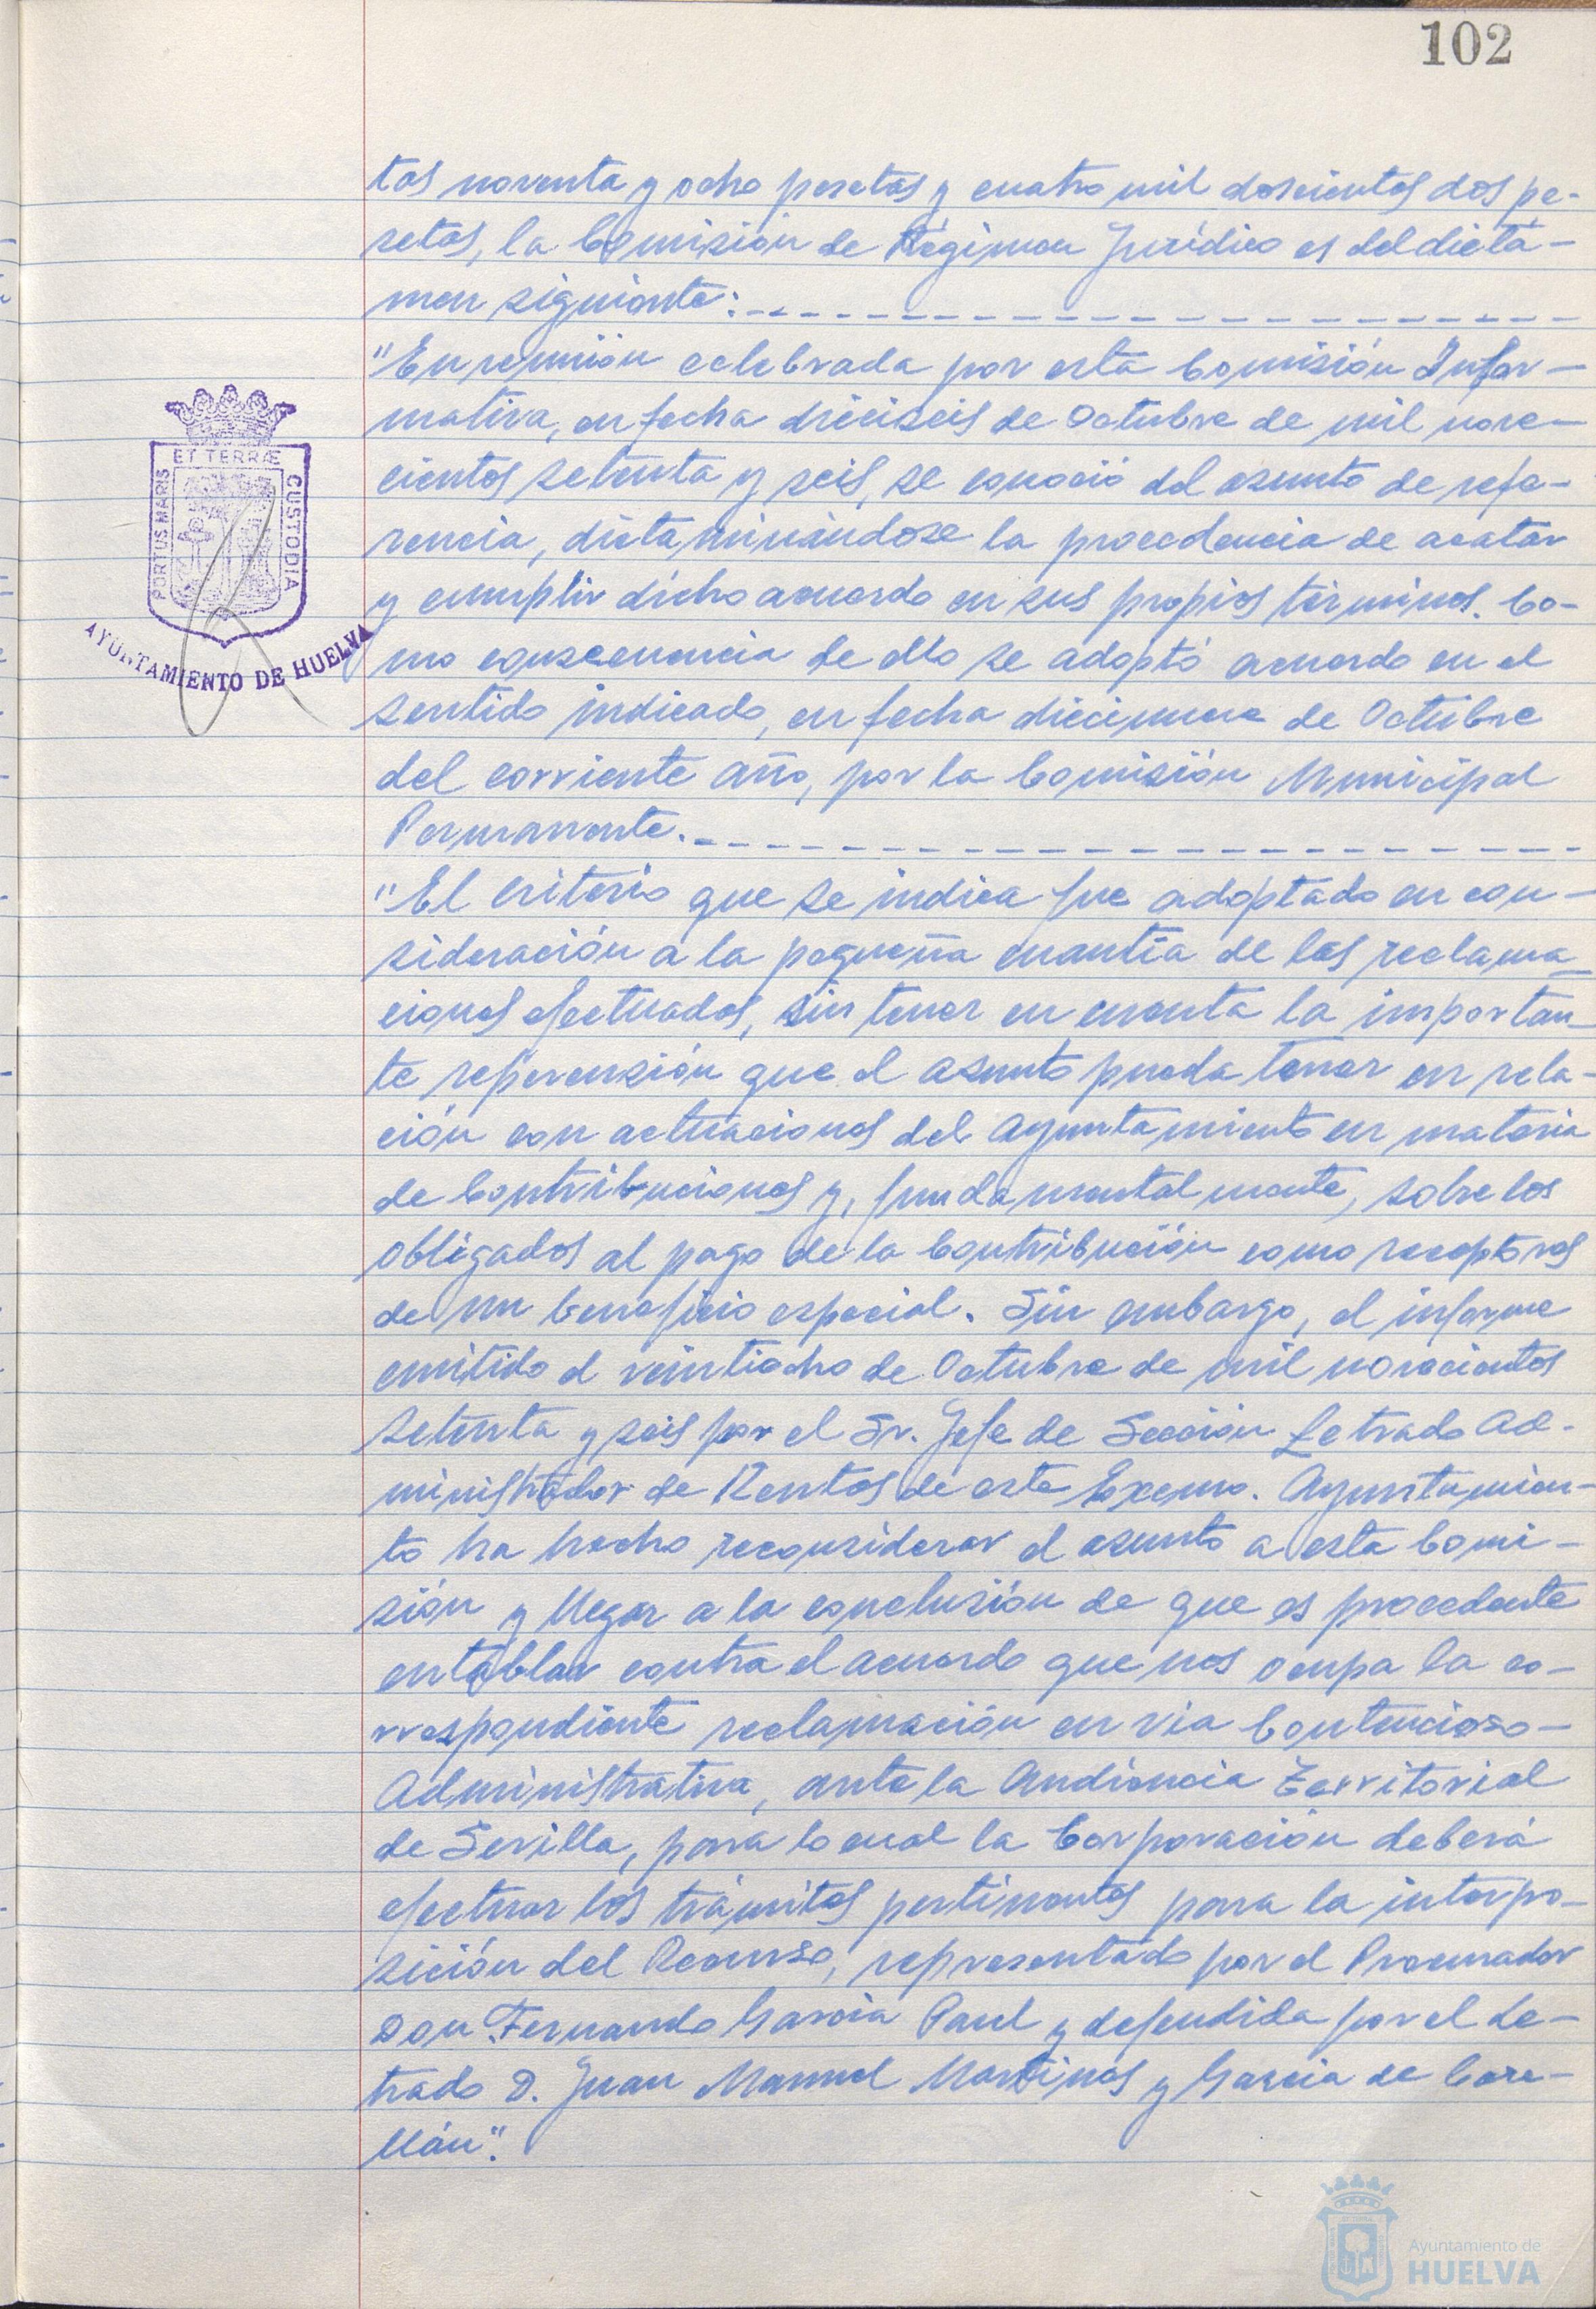 102
tas noventa y ocho pesetas y cuatro mil doscientas dos pe-
setas, la Comisión de Régimen Jurídico es del dictá-
men siguiente:
"En reunión celebrada por esta Comisión Infor-
mativa, en fecha dieciseis de Octubre de mil nove-
cientos setenta y seis, se conoció del asunto de refe-
rencia, dictaminándose la procedencia de acatar
y cumplir dicho acuerdo en sus propios términos. Co-
mo consecuencia de ello se adoptó acuerdo en el
sentido indicado, en fecha diecinueve de Octubre
del corriente año, por la Comisión Municipal
Permanente.
"El criterio que se indica fue adoptado en con-
sideración a la pequeña cuantía de las reclama-
ciones efectuadas, sin tener en cuenta la importan-
te repercusión que el asunto pueda tener en rela-
ción con actuaciones del Ayuntamiento en materia
de Contribuciones y, fundamentalmente, sobre los
obligados al pago de la Contribución como receptores
de un beneficio especial. Sin embargo, el informe
emitido el veintiocho de Octubre de mil novecientos
setenta y seis por el Sr. Jefe de Sección Letrado Ad-
ministrador de Rentas de este Excmo. Ayuntamien-
to ha hecho reconsiderar el asunto a esta Comi-
sión y llegar a la conclusión de que es procedente
entablar contra el acuerdo que nos ocupa la co-
rrespondiente reclamación en vía Contencioso-
Administrativa, ante la Audiencia Territorial
de Sevilla, para lo cual la Corporación deberá
efectuar los trámites pertinentes para la interpo-
sición del Recurso, representado por el Procurador
Don Fernando García Paul y defendida por el Le-
trado D. Juan Manuel Martinez y García de Care-
llán".
PORTUS MARIS
ET TERRÆ
CUSTODIA
AYUNTAMIENTO DE HUELVA
Ayuntamiento de
HUELVA